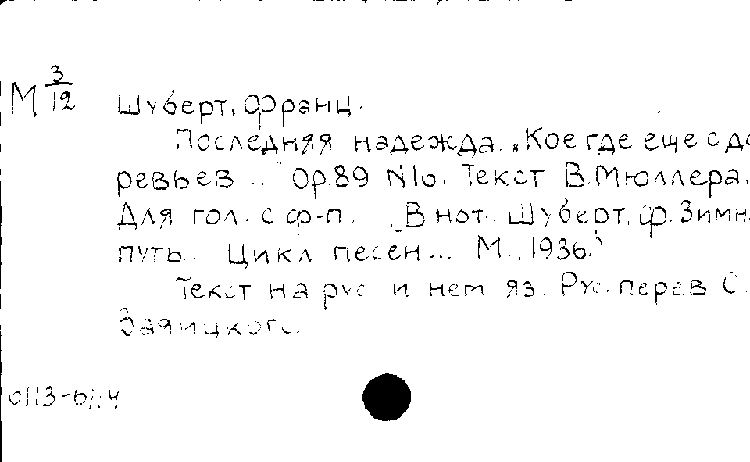 М 3/12 Шуберт, Франц.
Последняя надежда. „Кое где еще с де
ревьев..." Op.89 N10. Текст В.Мюллера.
Для гол. с ф-п. „В нот. Шуберт, Ф. Зимн.
путь. Цикл песен... М., 1936."
Текст на рус и нем яз. Рус. перев С.
Заяицкого.